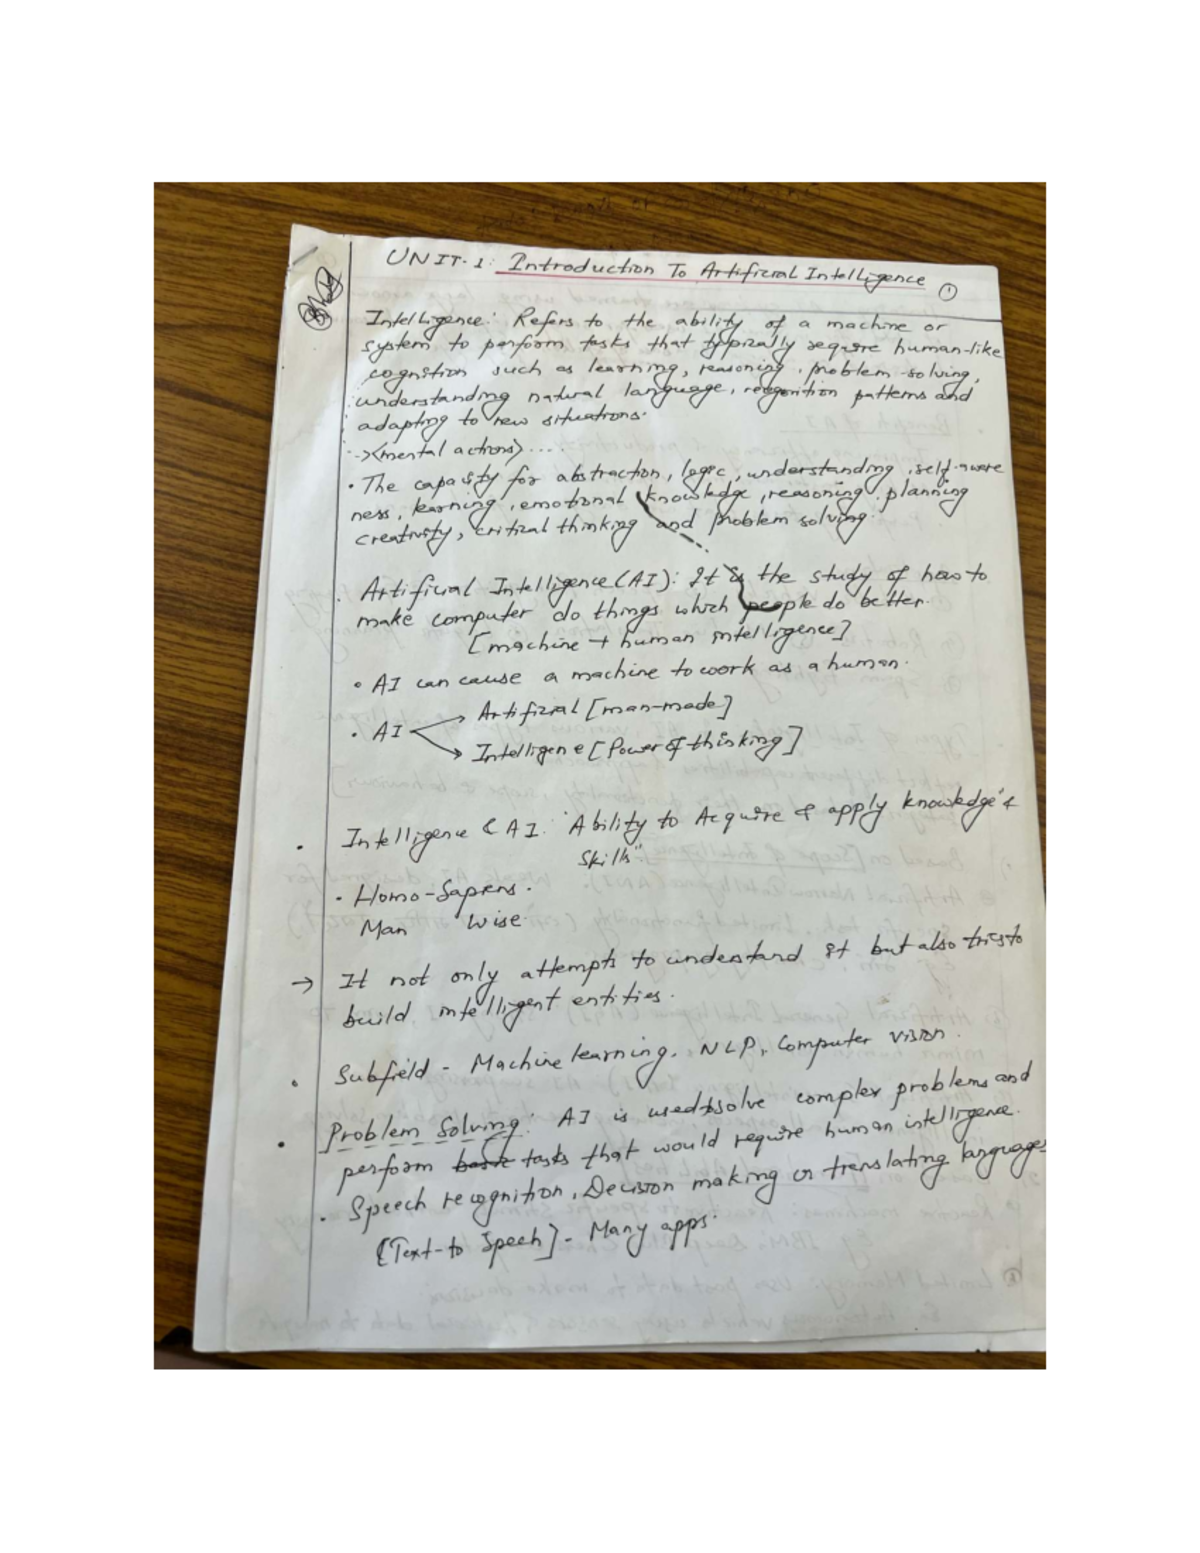 UNIT-1: Introduction To Artificial Intelligence
1
Intelligence: Refers to the ability of a machine or
system to perform tasks that typically require human-like
cognition such as learning, reasoning, problem-solving,
understanding natural language, recognition patterns and
adapting to new situations.
-><mental actions>....
• The capacity for abstraction, logic, understanding, self-aware
ness, learning, emotional knowledge, reasoning, planning
creativity, critical thinking and problem solving.
Artificial Intelligence (AI): It is the study of how to
make computer do things which people do better.
[machine + human intelligence]
• AI can cause a machine to work as a human.
Artificial [man-made]
• AI
Intelligence [Power of thinking]
• Intelligence & AI: "Ability to Acquire & apply knowledge &
skills".
• Homo-Sapiens.
Man Wise
→ It not only attempts to understand it but also tries to
build intelligent entities.
• Subfield - Machine learning, NLP, Computer vision.
• Problem Solving: AI is used to solve complex problems and
perform tasks that would require human intelligence.
• Speech recognition, Decision making or translating languages
[Text-to Speech] - Many apps.